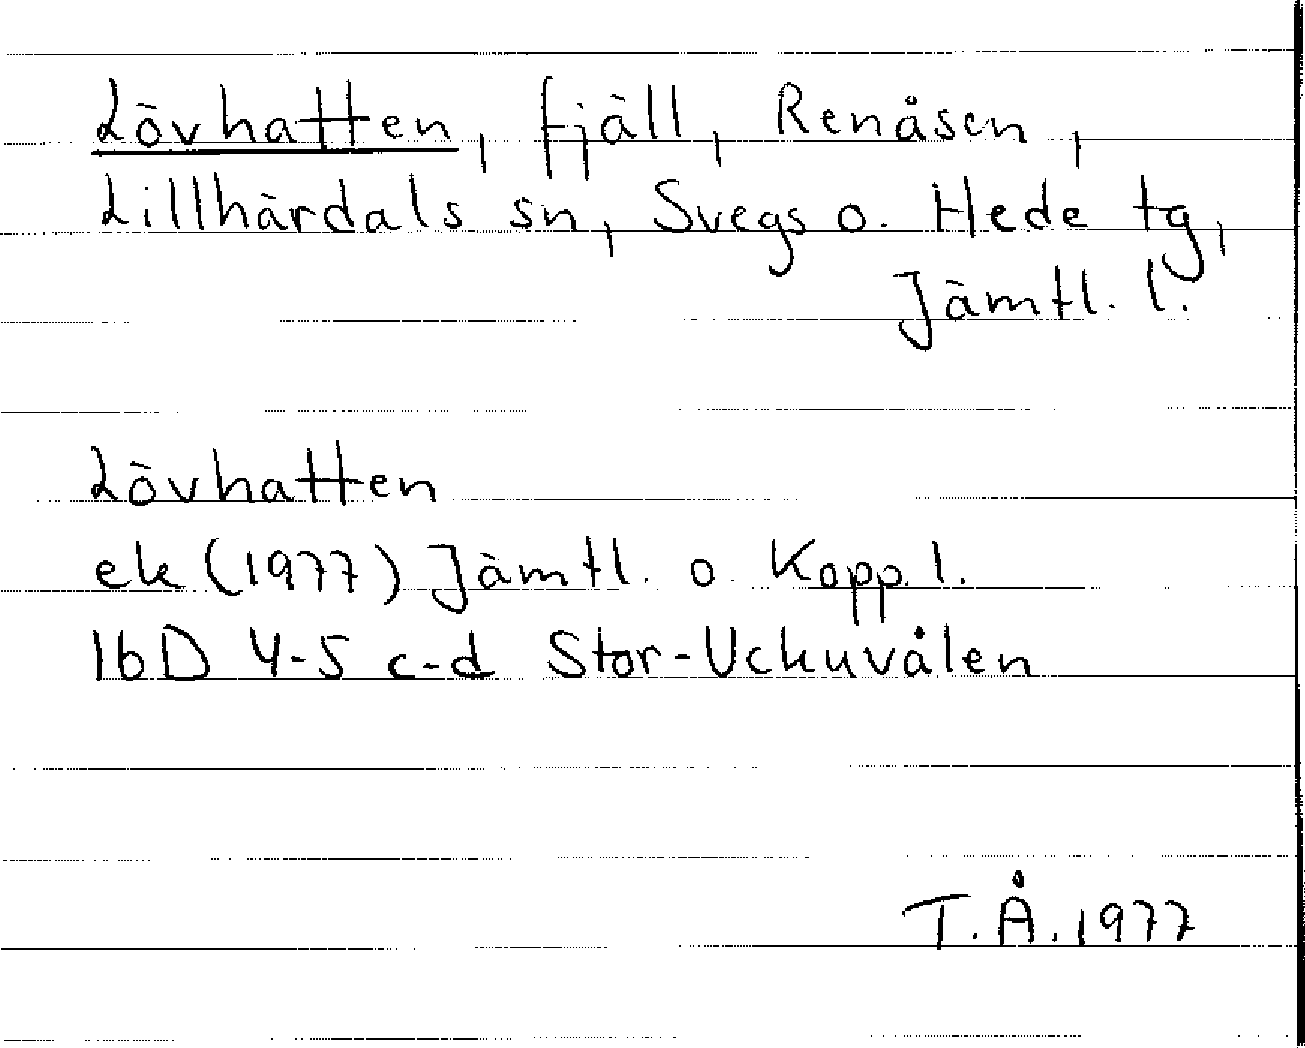 Lövhatten, fjäll, Renåsen,
Lillhärdals sn, Svegs o. Hede tg,
Jämtl. l.
Lövhatten
ek (1977) Jämtl. o. Kopp. l.
16D 4-5 c-d Stor-Uckuvålen
T.Å. 1977